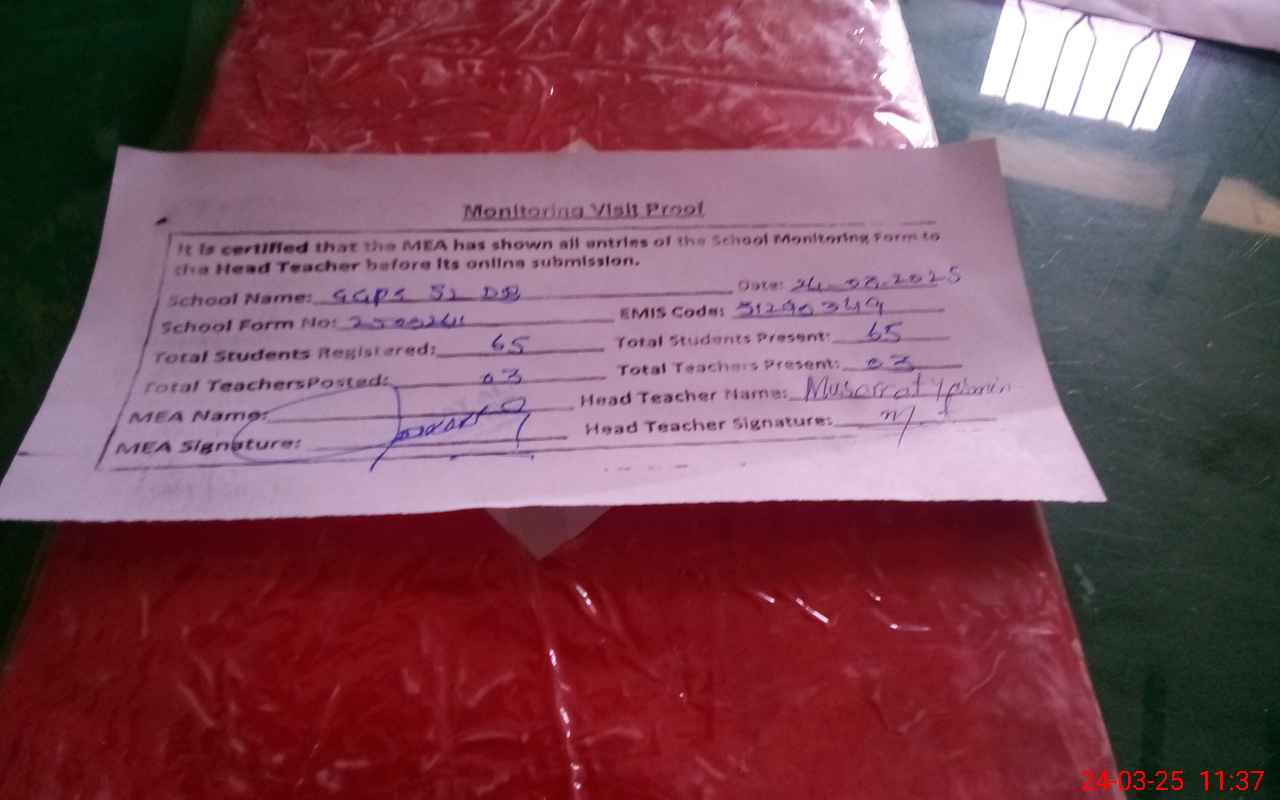 Monitoring Visit Proof
It is certified that the MEA has shown all entries of the School Monitoring Form to
the Head Teacher before its online submission.
School Name: GGPS 52 DB Date: 24.03.2025
School Form No: EMIS Code: 31290349
Total Students Registered: 65 Total Students Present: 65
Total TeachersPosted: 03 Total Teachers Present: 03
MEA Name: Head Teacher Name: Musarrat Yasmin
MEA Signature: Head Teacher Signature:
24-03-25 11:37